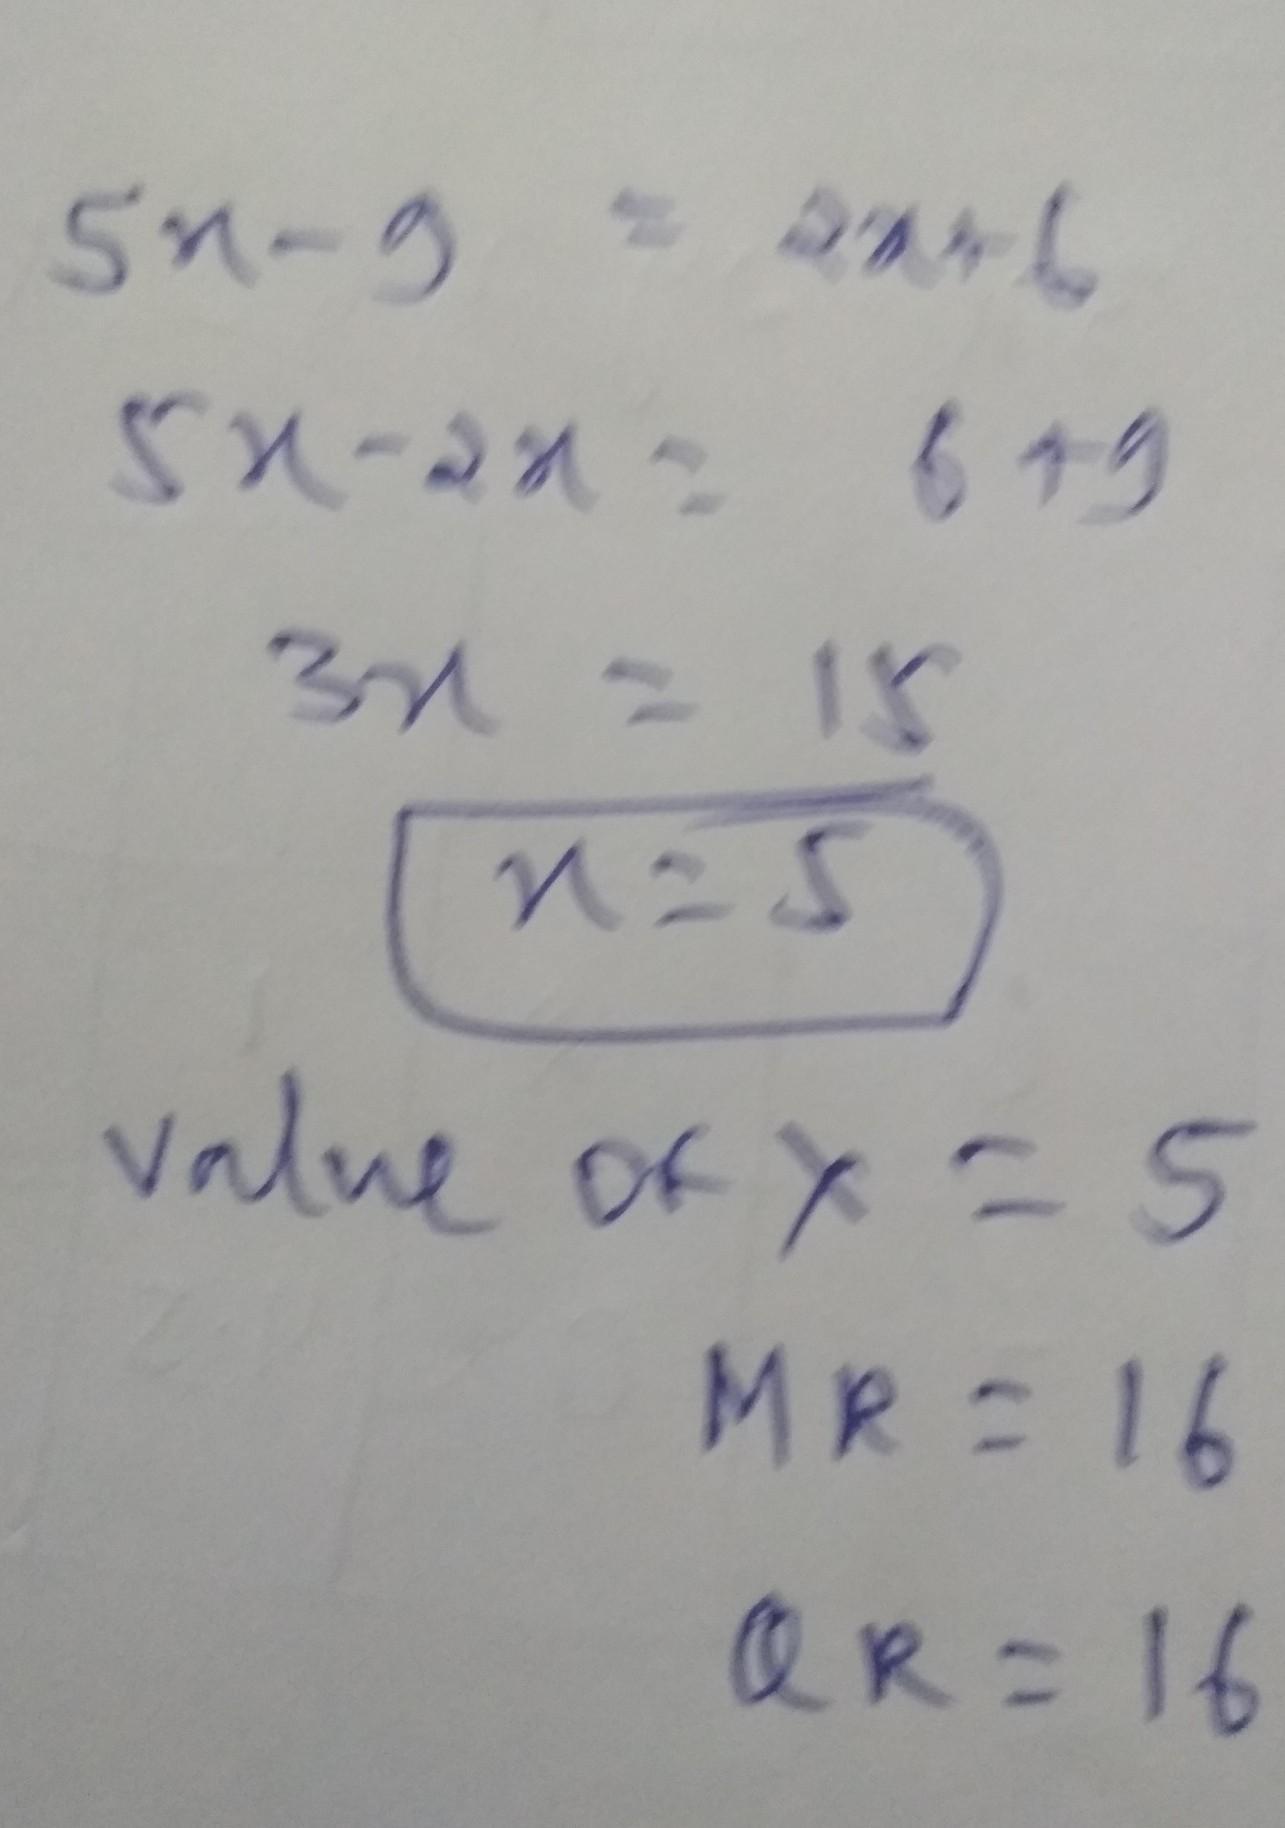 5x-9 = 2x+6
5x-2x= 6+9
3x = 15
x=5
value of x = 5
MR = 16
QR = 16